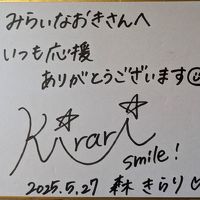 みらいなおきさんへ
いつも応援
ありがとうございます☺
Kirari
smile!
2025.5.27 森 きらり♡